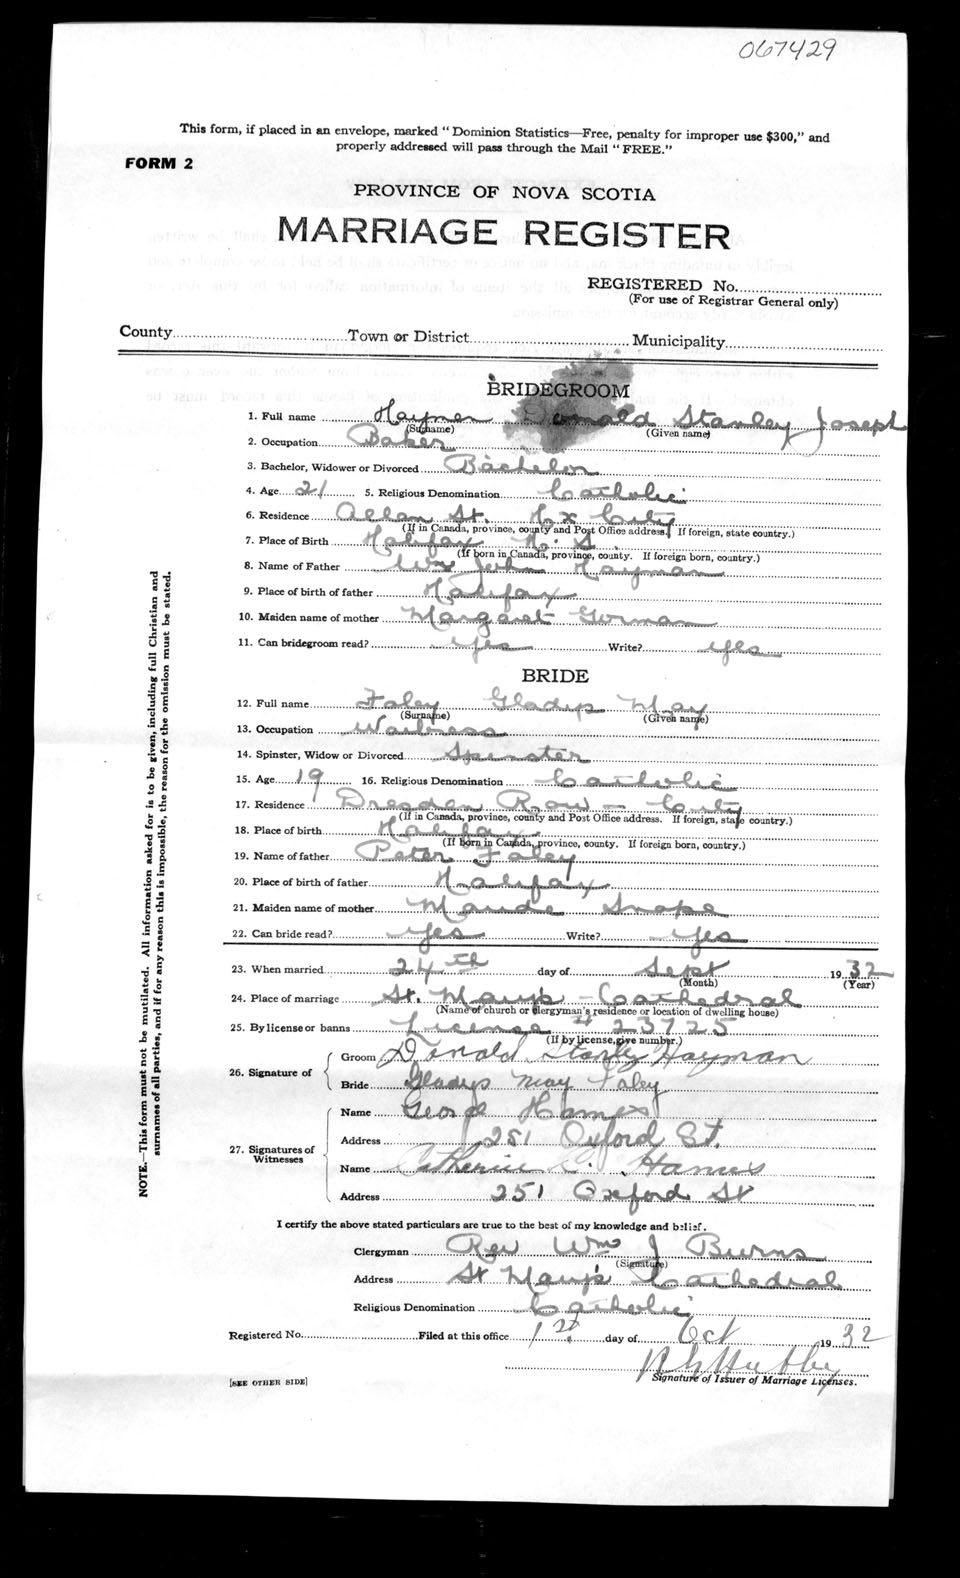 067429
This form, if placed in an envelope, marked "Dominion Statistics—Free, penalty for improper use $300," and
properly addressed will pass through the Mail "FREE."
FORM 2
PROVINCE OF NOVA SCOTIA
MARRIAGE REGISTER
REGISTERED No.
(For use of Registrar General only)
County Town or District Municipality
BRIDEGROOM
1. Full name Haymen Donald Stanley Joseph
(Surname) (Given name)
2. Occupation Baker
3. Bachelor, Widower or Divorced Bachelor
4. Age 21 5. Religious Denomination Catholic
6. Residence Allen St. Hx City
(If in Canada, province, county and Post Office address. If foreign, state country.)
7. Place of Birth Halifax N.S.
(If born in Canada, province, county. If foreign born, country.)
8. Name of Father Wm John Hayman
9. Place of birth of father Halifax
10. Maiden name of mother Margaret Gorman
11. Can bridegroom read? yes Write? yes
BRIDE
12. Full name Faley Gladys May
(Surname) (Given name)
13. Occupation Waitress
14. Spinster, Widow or Divorced Spinster
15. Age 19 16. Religious Denomination Catholic
17. Residence Dresden Row - City
(If in Canada, province, county and Post Office address. If foreign, state country.)
18. Place of birth Halifax
(If born in Canada, province, county. If foreign born, country.)
19. Name of father Peter Faley
20. Place of birth of father Halifax
21. Maiden name of mother Maude Snope
22. Can bride read? yes Write? yes
23. When married 24th day of Sept 1932
(Month) (Year)
24. Place of marriage St. Mary's - Cathedral
(Name of church or clergyman's residence or location of dwelling house)
25. By license or banns License # 23725
(If by license, give number.)
26. Signature of
Groom Donald Stanley Hayman
Bride Gladys May Faley
27. Signatures of Witnesses
Name George Hames
Address 251 Oxford St.
Name Catherine Hames
Address 251 Oxford St
I certify the above stated particulars are true to the best of my knowledge and belief.
Clergyman Rev Wm J Burns
(Signature)
Address St Mary's Cathedral
Religious Denomination Catholic
Registered No. Filed at this office 1st day of Oct 1932
Signature of Issuer of Marriage Licenses.
[SEE OTHER SIDE]
NOTE.—This form must not be mutilated. All information asked for is to be given, including full Christian and
surnames of all parties, and if for any reason this is impossible, the reason for the omission must be stated.